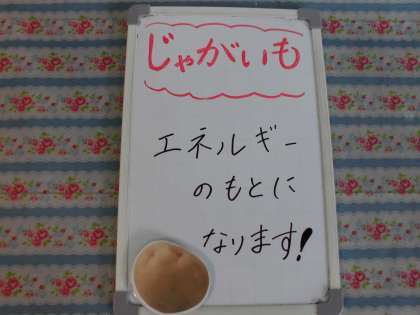 じゃがいも
エネルギー
のもとに
なります!